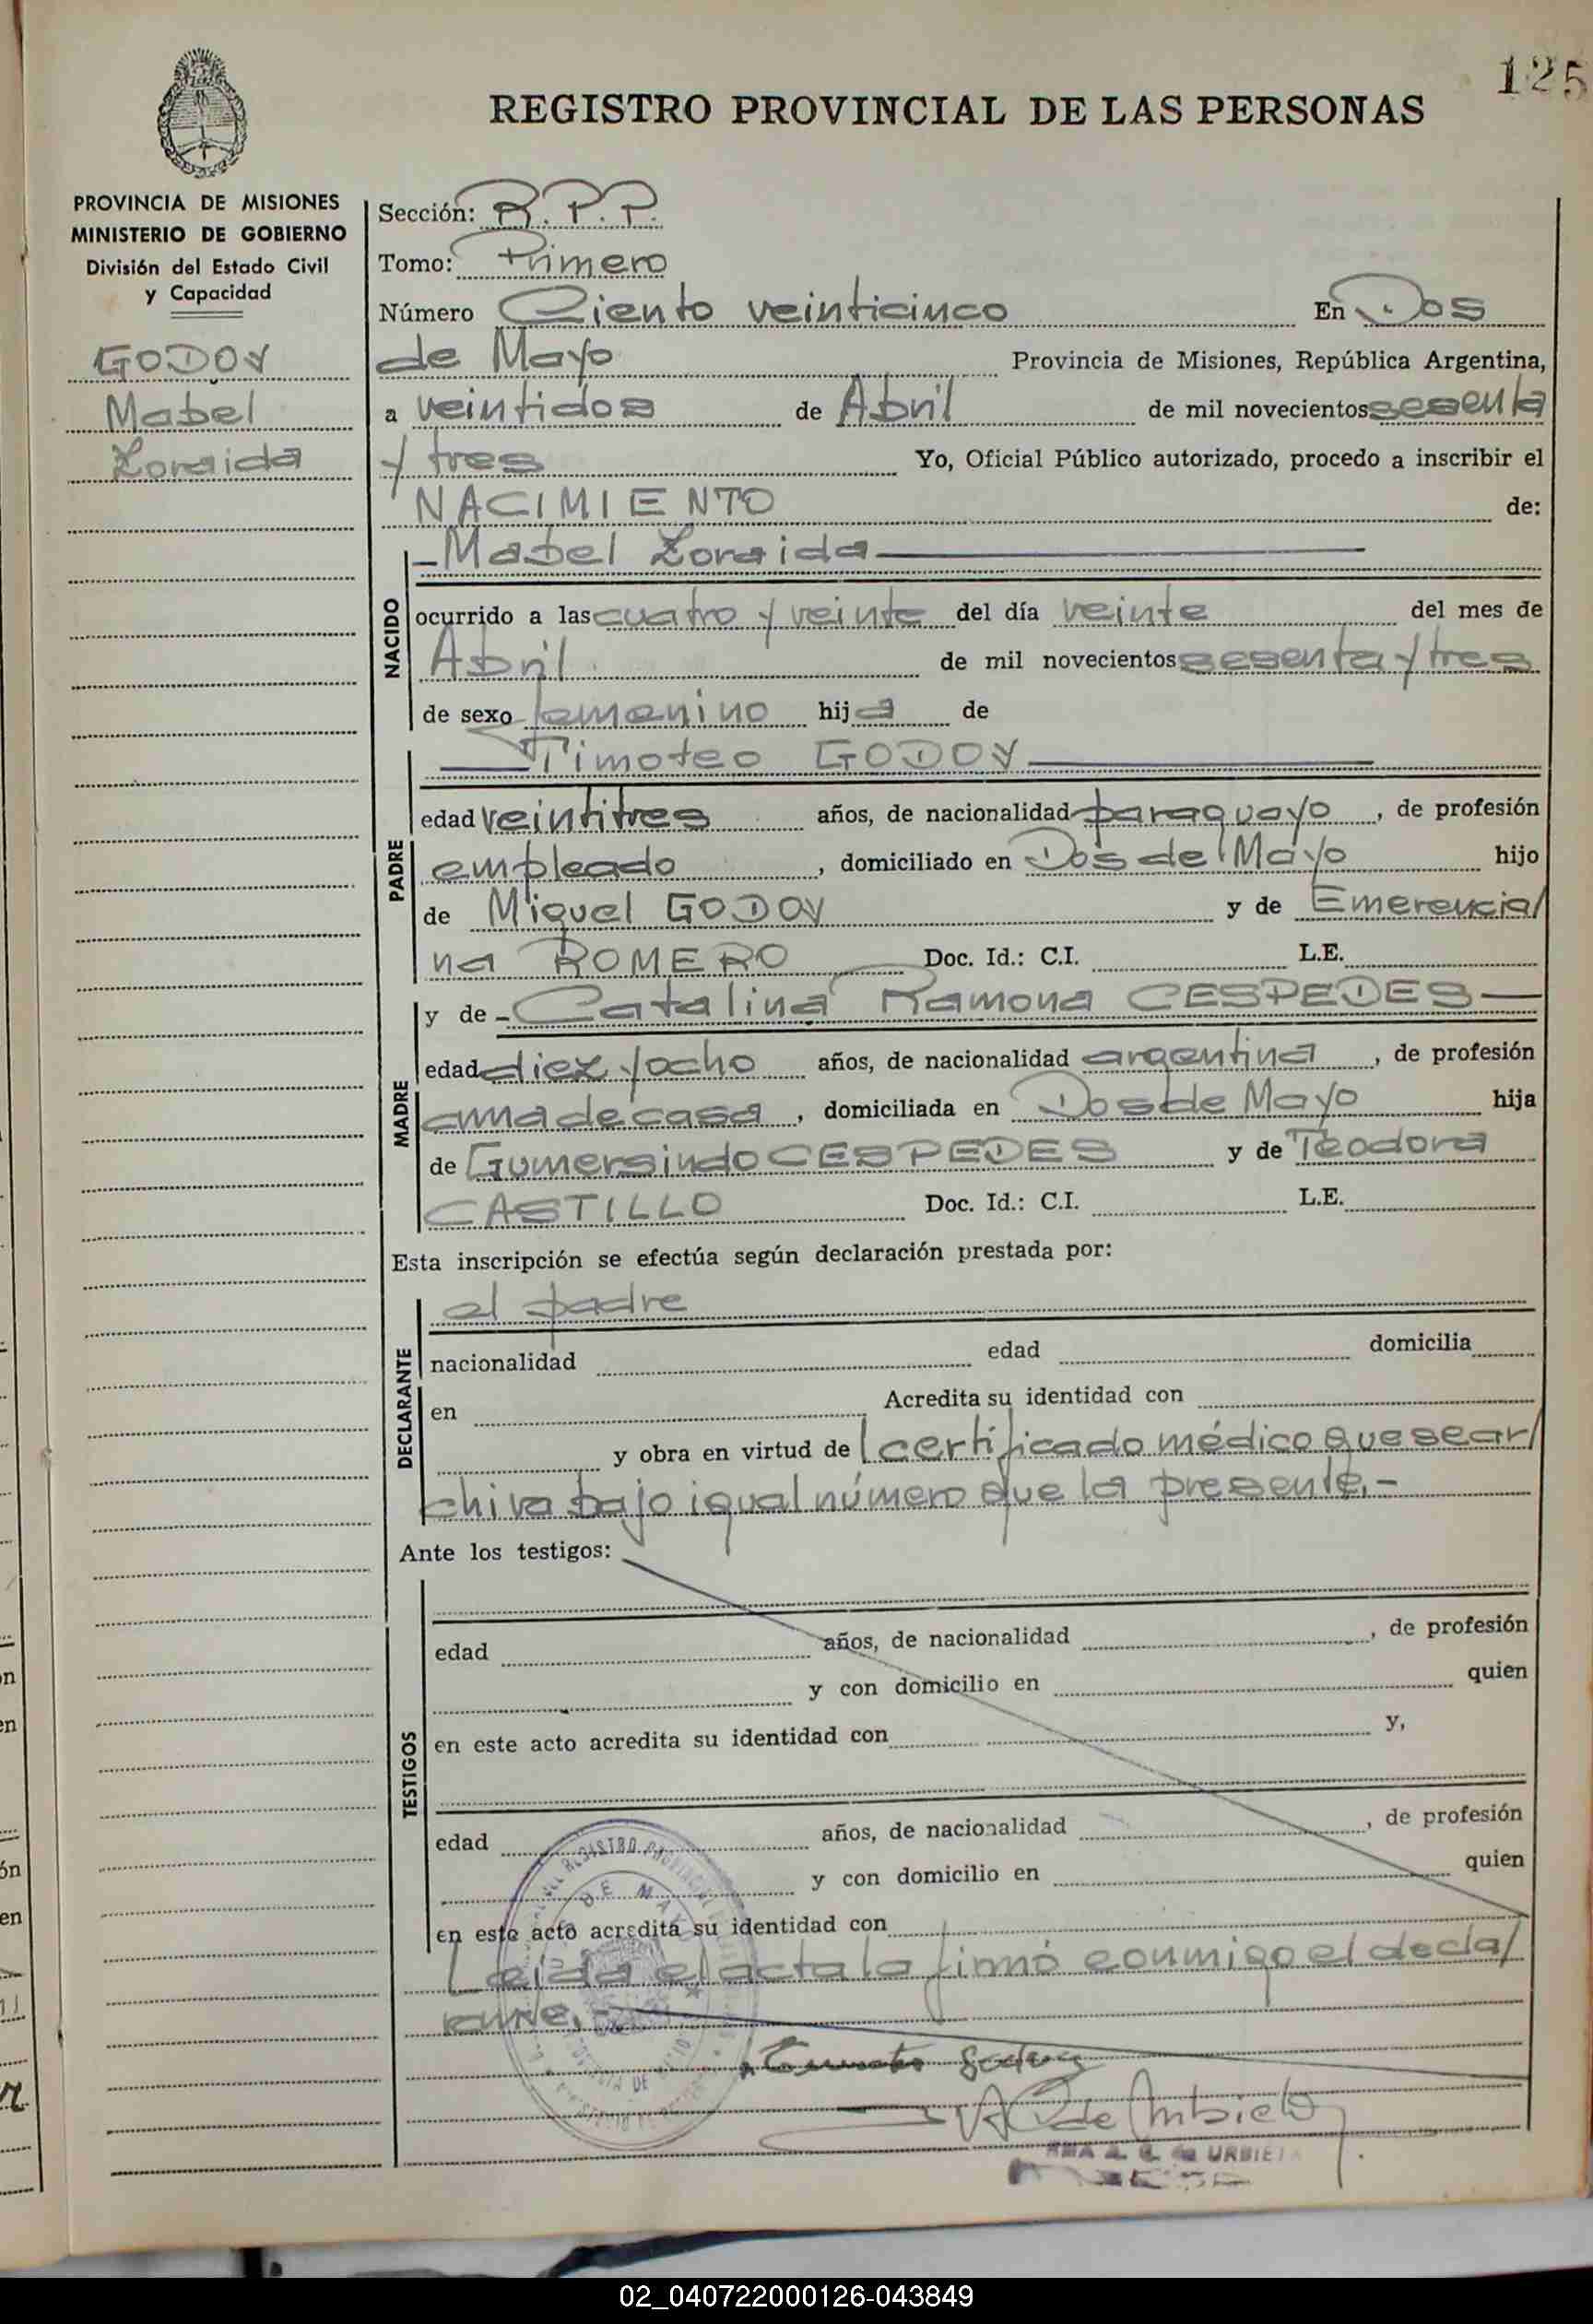 125
REGISTRO PROVINCIAL DE LAS PERSONAS
PROVINCIA DE MISIONES
MINISTERIO DE GOBIERNO
División del Estado Civil
y Capacidad
GODOY
Mabel
Zoraida
Sección: R.P.P.
Tomo: Primero
Número Ciento veinticinco En Dos
de Mayo Provincia de Misiones, República Argentina,
a veintidos de Abril de mil novecientos sesenta
y tres Yo, Oficial Público autorizado, procedo a inscribir el
NACIMIENTO de:
NACIDO
- Mabel Zoraida
ocurrido a las cuatro y veinte del día veinte del mes de
Abril. de mil novecientos sesenta y tres
de sexo femenino hija de
PADRE
Timoteo GODOY
edad veintitres años, de nacionalidad paraguayo, de profesión
empleado, domiciliado en Dos de Mayo hijo
de Miguel GODOY y de Emerencia/
na ROMERO Doc. Id.: C.I. L.E.
MADRE
y de - Catalina Ramona CESPEDES
edad diez y ocho años, de nacionalidad argentina, de profesión
ama de casa, domiciliada en Dos de Mayo hija
de Gumersindo CESPEDES y de Teodora
CASTILLO Doc. Id.: C.I. L.E.
Esta inscripción se efectúa según declaración prestada por:
DECLARANTE
el padre
nacionalidad edad domicilia
en Acredita su identidad con
y obra en virtud de certificado médico que se ar/
chiva bajo igual número que la presente.-
Ante los testigos:
TESTIGOS
edad años, de nacionalidad , de profesión
y con domicilio en quien
en este acto acredita su identidad con y,
edad años, de nacionalidad , de profesión
y con domicilio en quien
en este acto acredita su identidad con
Leída el acta la firmó conmigo el decla/
rante.
URBIETA
02_040722000126-043849